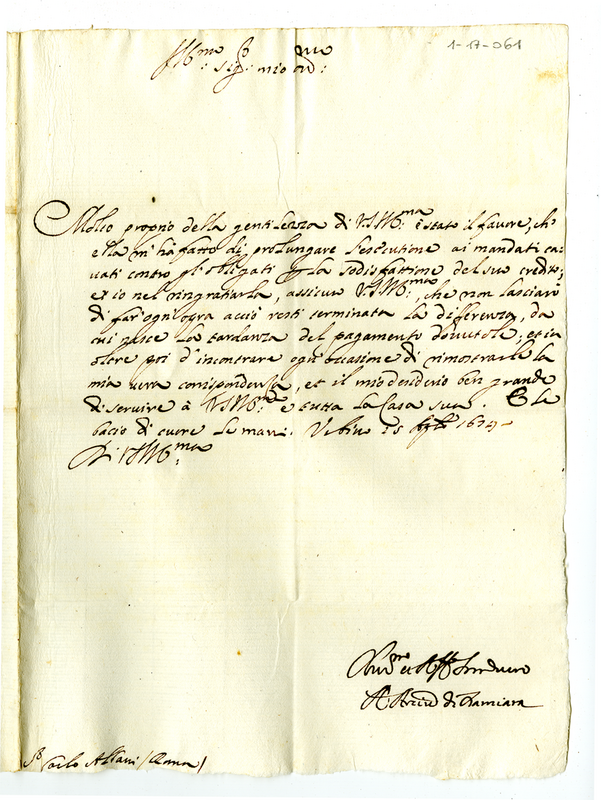 1-17-061
Ill.mo Sig.r mio oss.mo
Molto proprio della gentilezza di V.S. Ill.ma è stato il favore, ch'
ella m'ha fatto di prolungare l'essecutione ai mandati ca-
uati contro gl'obligati p la sodisfattione del suo credito;
et io nel ringratiarla, assicuro V.S. Ill.ma, che non lasciarò
di far' ogni opra acciò resti terminata la differenza, da
cui nasce la tardanza del pagamento douutole; et in
oltre poi d'incontrare ogn'occasione di rimostrarle la
mia uera corrispondenza, et il mio desiderio ben grande
di seruire à V.S. Ill.ma e tutta la Casa sua. E le
bacio di cuore le mani. Urbino 15 1674
Di V.S. Ill.ma
et Aff.mo Ser.re uero
di
S.r Carlo Albani (Roma)